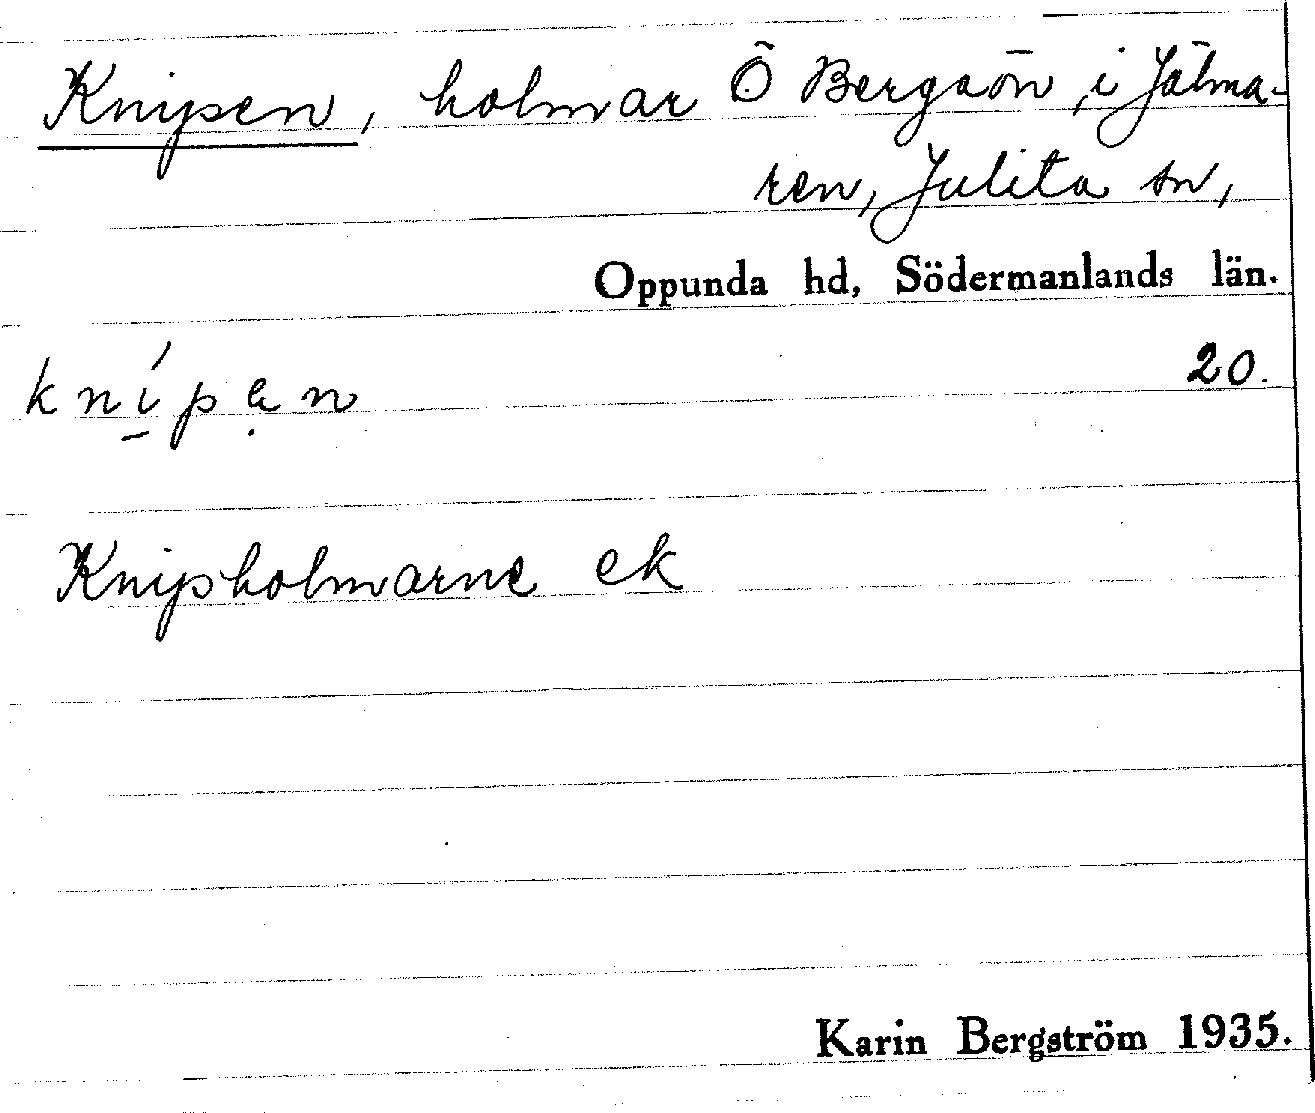 Knipen, holmar Ö Bergaön, i Jälma-
ren, Julita sn,
Oppunda hd, Södermanlands län.
knípạn 20.
Knipholmarne ek
Karin Bergström 1935.